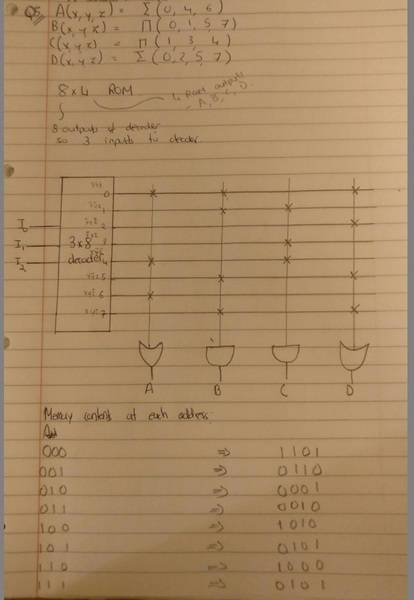 Q5. A(x,y,z) = Σ(0, 4, 6)
B(x,y,z) = Π(0, 1, 5, 7)
C(x,y,z) = Π(1, 3, 4)
D(x,y,z) = Σ(0, 2, 5, 7)
8x4 ROM
A, B, C, D
8 outputs of decoder
so 3 inputs to decoder
0
1
2
I0
I1 3x8 3
I2 decoder 4
5
6
7
A B C D
Memory contents at each address:
000 ⇒ 1101
001 ⇒ 0110
010 ⇒ 0001
011 ⇒ 0010
100 ⇒ 1010
101 ⇒ 0101
110 ⇒ 1000
111 ⇒ 0101